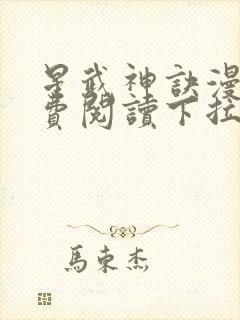 星武神訣漫
費閱讀下拉
馬東杰